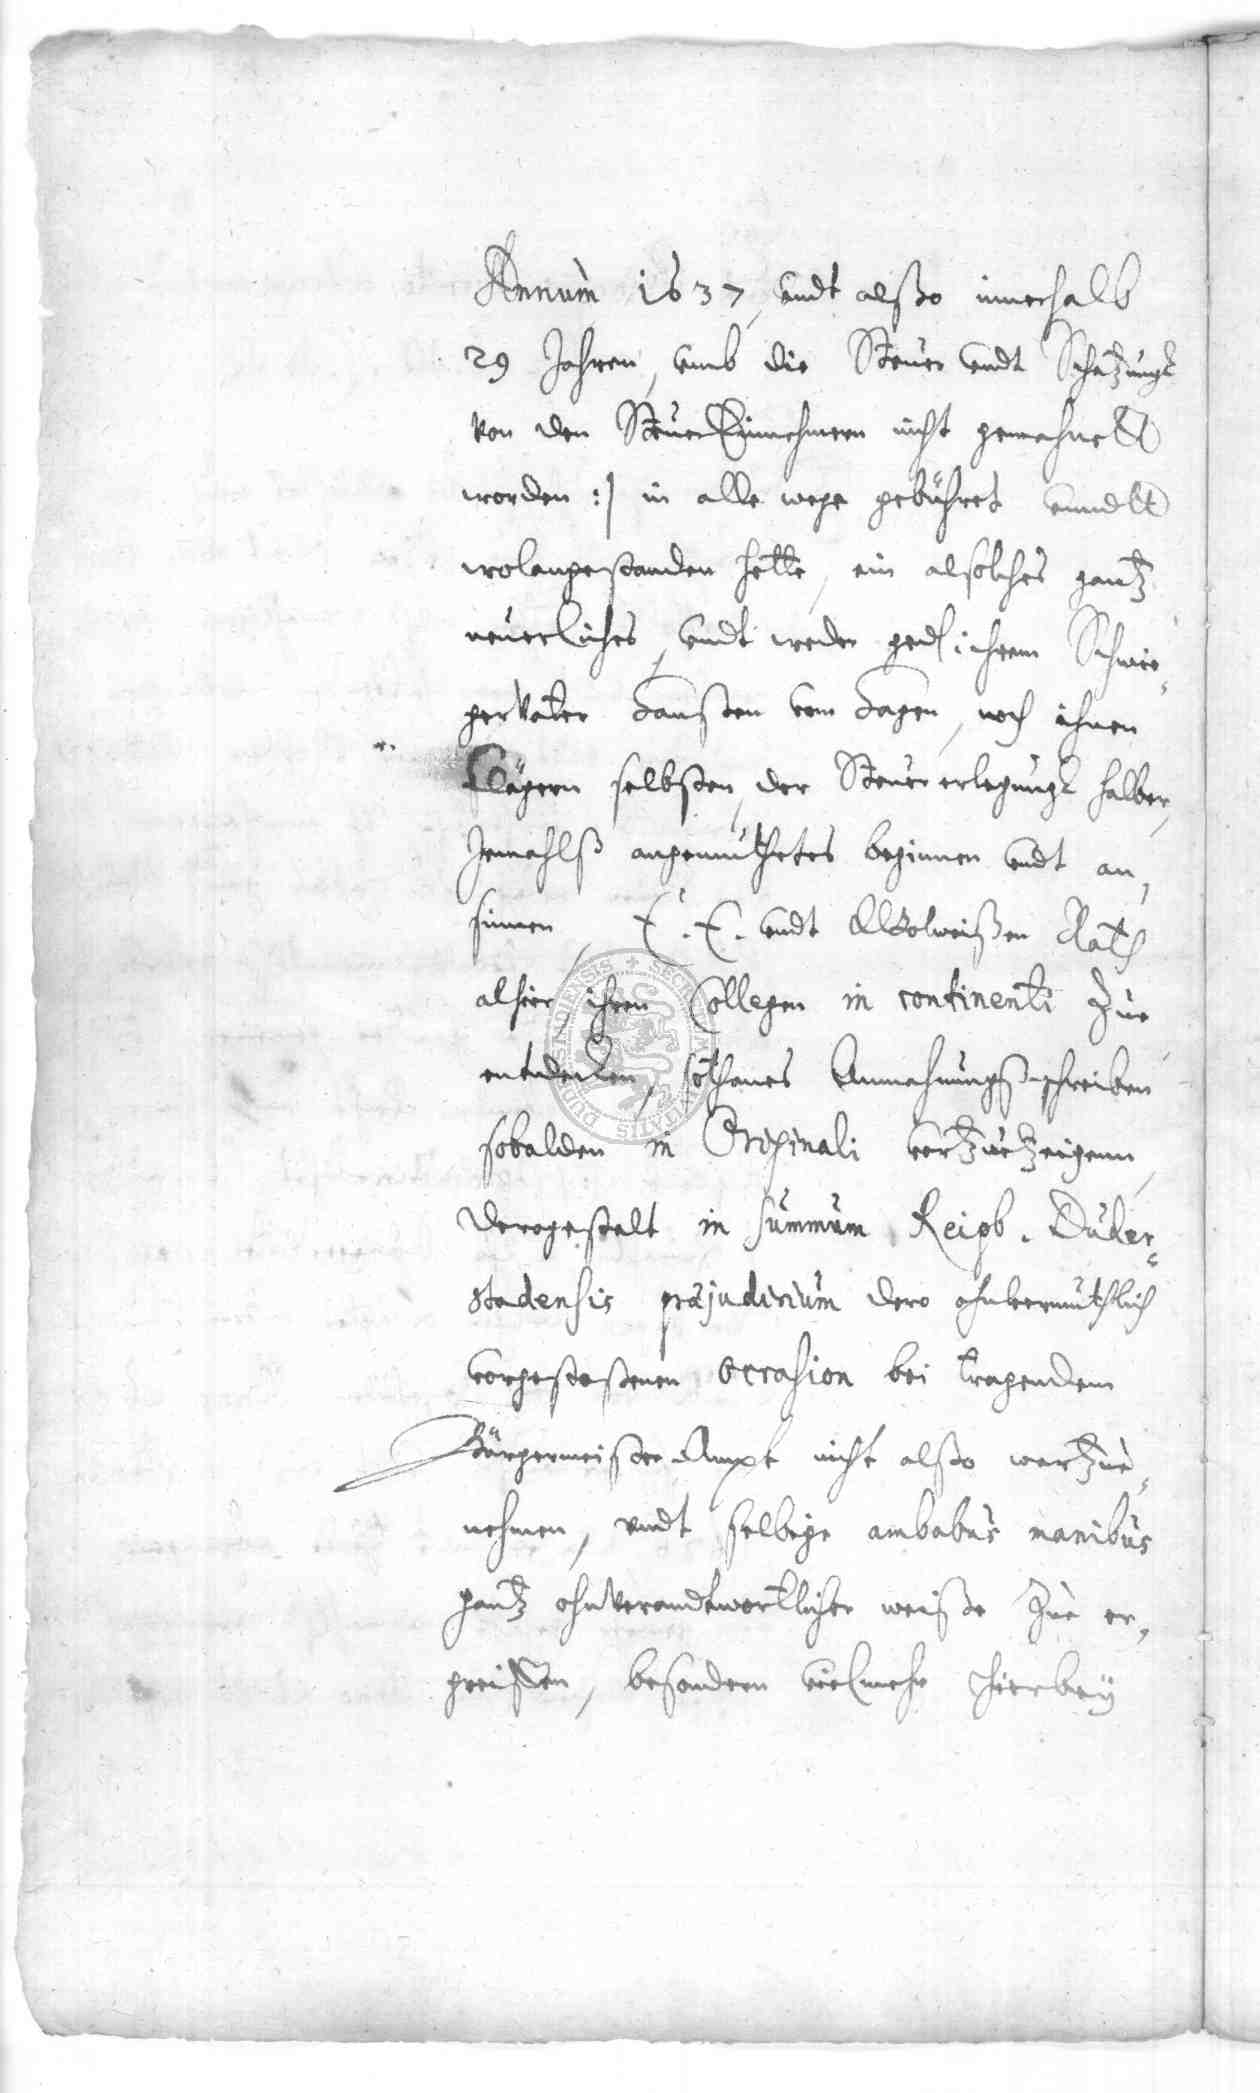 Annum 1637, undt alßo innerhalb
29 Jahren, umb die Steuer undt Schatzungk
von den Steuer Einnehmern nicht gemahnett
worden :| in alle wege gebühret unndtt
wolangestanden hette, ein alsolches gantz
neuerliches, undt weder ged. ihrem Schwie-
gervater Hansten vom Hagen, noch ihnen
Clägern selbsten, der Steuererlegungk halber,
Jemahlß angemuthetes beginnen undt an-
sinnen, E. E. undt Wolweißen Rath
alhier ihren Collegen in continenti zue
entdecken, sothanes Anmahnungßschreiben
sobalden in Originali vorzuezeigenn,
derogestalt in summum Reipb. Duder-
stadensis præjudicium dero ohnvermuthlich
vorgestoßenen occasion bei tragendem
Bürgermeister Ampt nicht alßo warzue-
nehmen, undt selbige ambabus manibus
gantz ohnverandtwortlicher weiße zue er-
greiffen, besondern vielmehr hierbey
SECRETUM CIVITATIS DUDERSTADIENSIS